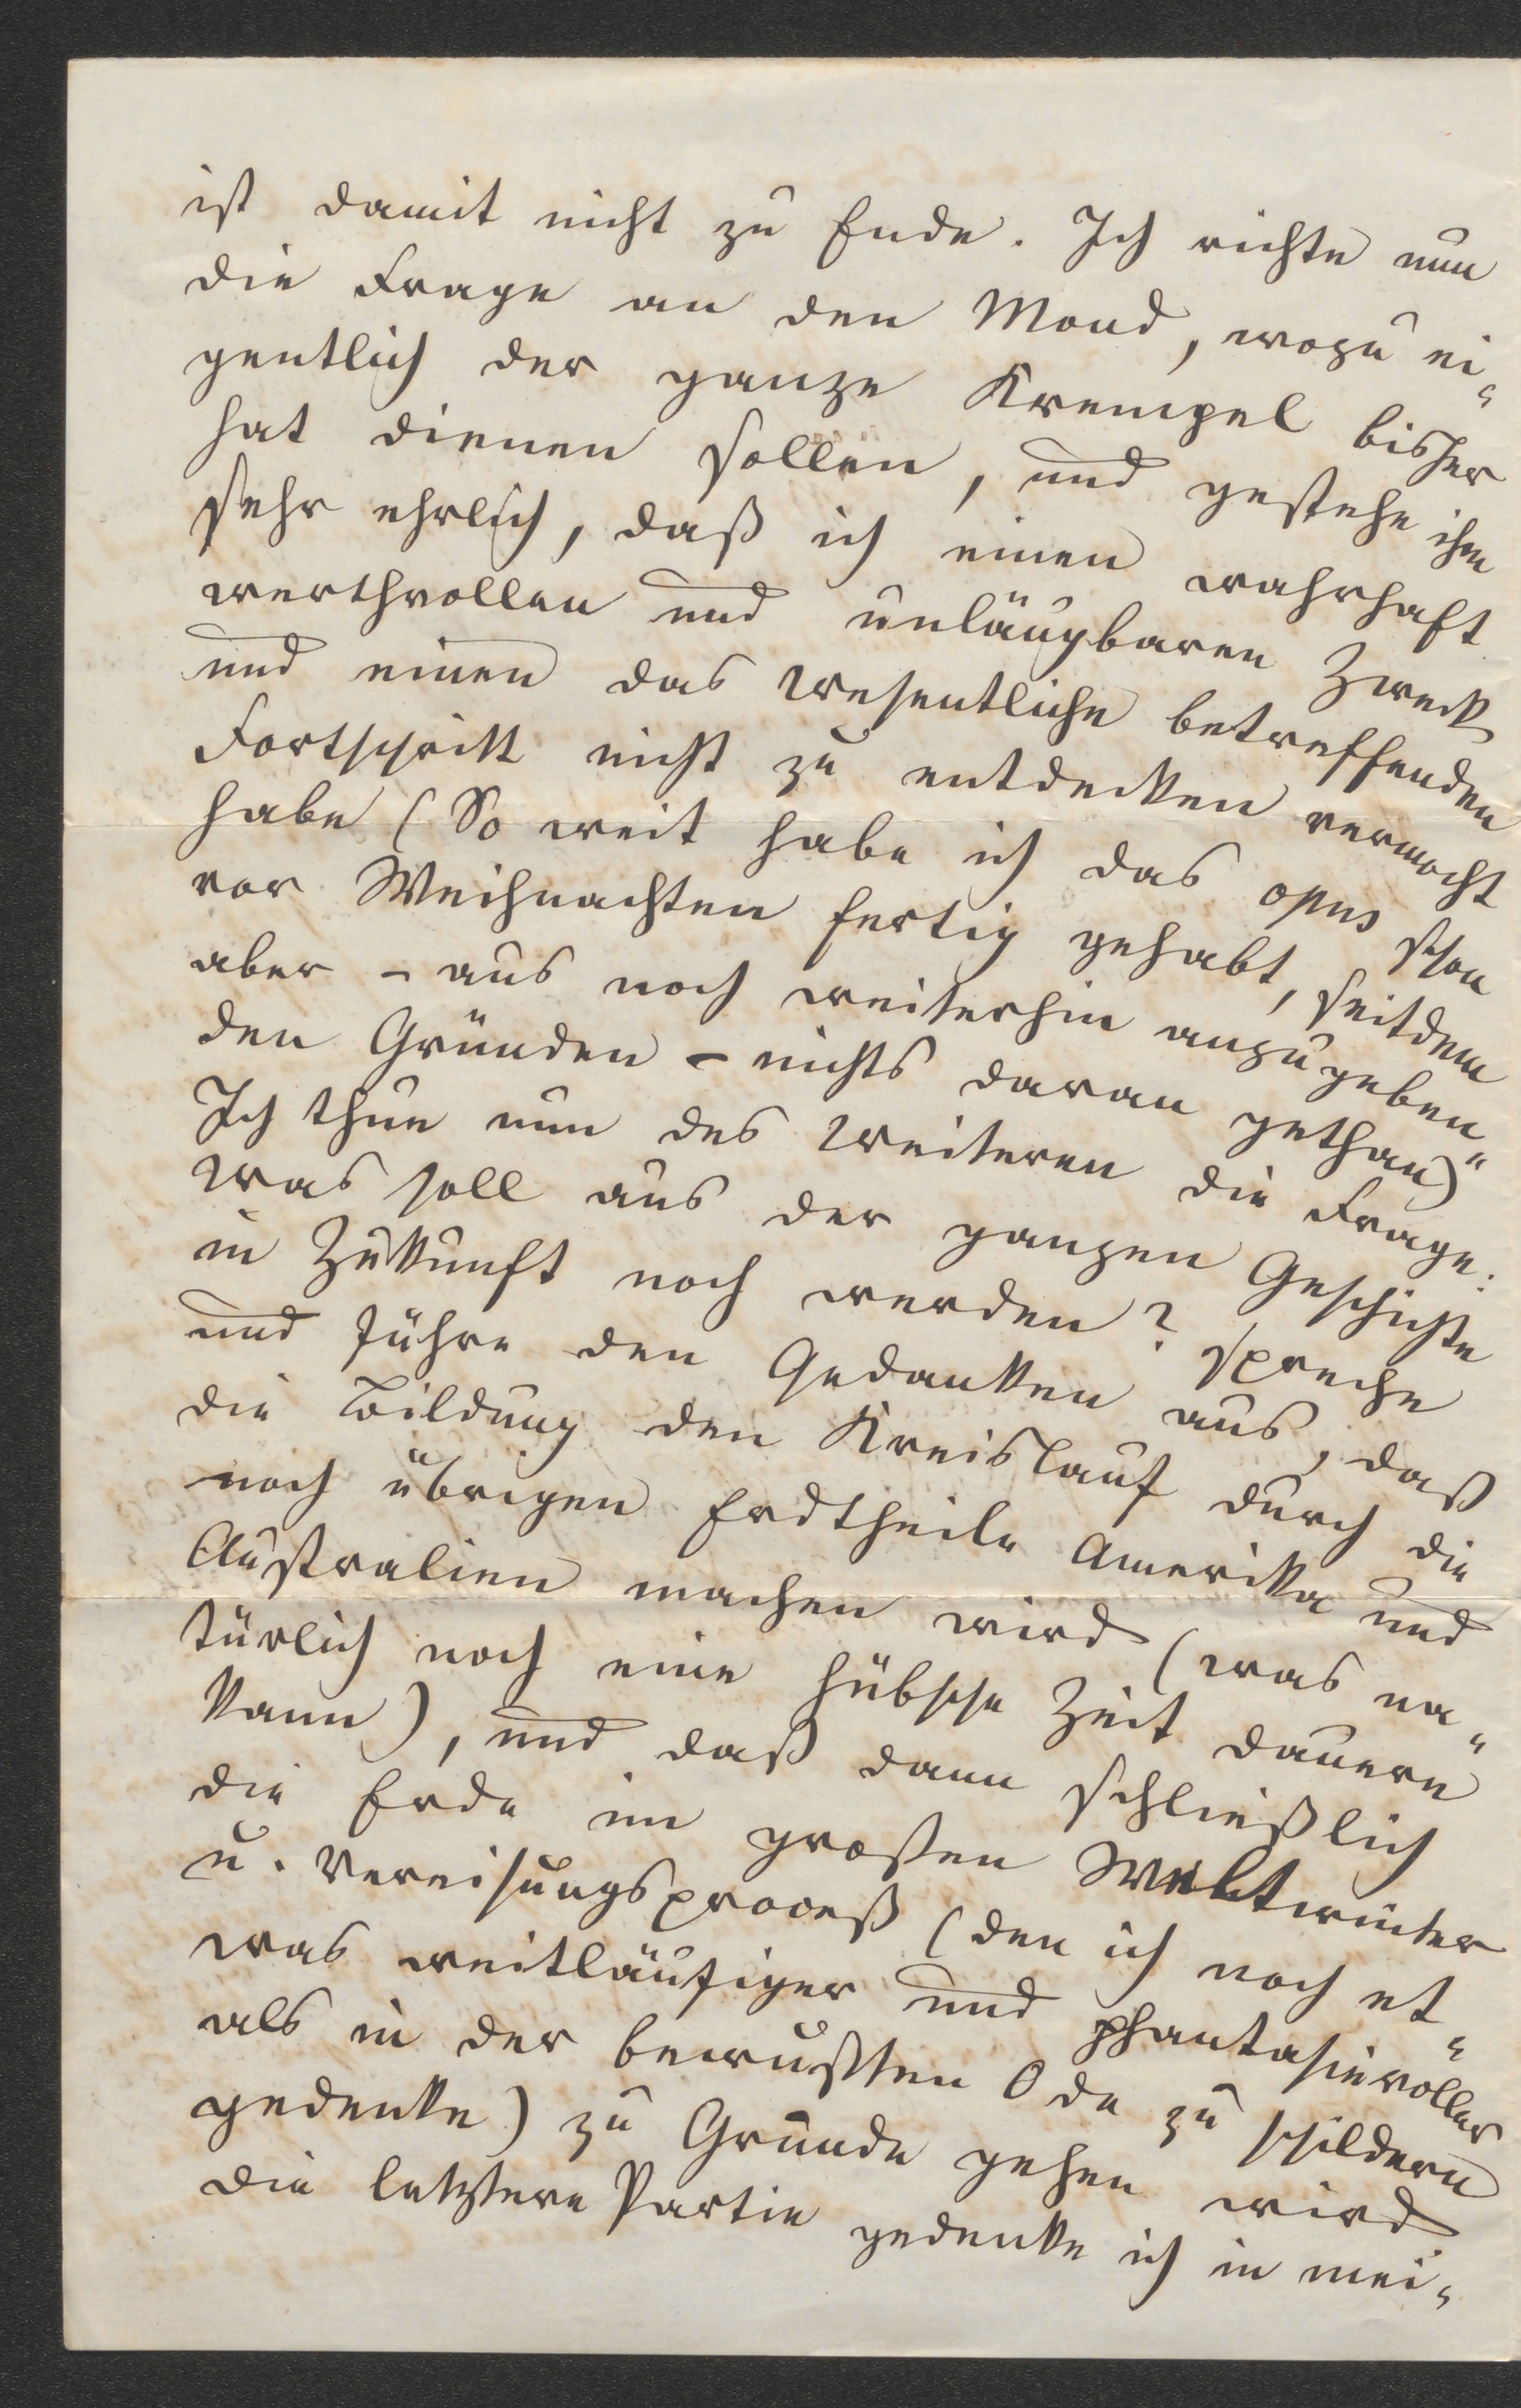 ist damit nicht zu Ende. Ich richte nun
die Frage an den Mond, wozu ei-
gentlich der ganze Krempel bisher
hat dienen sollen, und gestehe ihm
sehr ehrlich, daß ich einen wahrhaft
werthvollen und unläugbaren Zweck
und einen das Wesentliche betreffenden
Fortschritt nicht zu entdecken vermocht
habe (So weit habe ich das opus schon
vor Weihnachten fertig gehabt, seitdem
aber – aus noch weiterhin anzugeben-
den Gründen – nichts daran gethan)
Ich thue nun des Weiteren die Frage:
Was soll aus der ganzen Geschichte
in Zukunft noch werden? spreche
und führe den Gedanken aus, daß
die Bildung den Kreislauf durch die
noch übrigen Erdtheile Amerika und
Australien machen wird (was na-
türlich noch eine hübsche Zeit dauern
kann), und daß dann schließlich
die Erde im großen Weltwinter
u. Vereisungsproceß (den ich noch et-
was weitläufiger und phantasievoller
als in der bewußten Ode zu schildern
gedenke) zu Grunde gehen wird.
Die letztere Partie gedenke ich in mei-